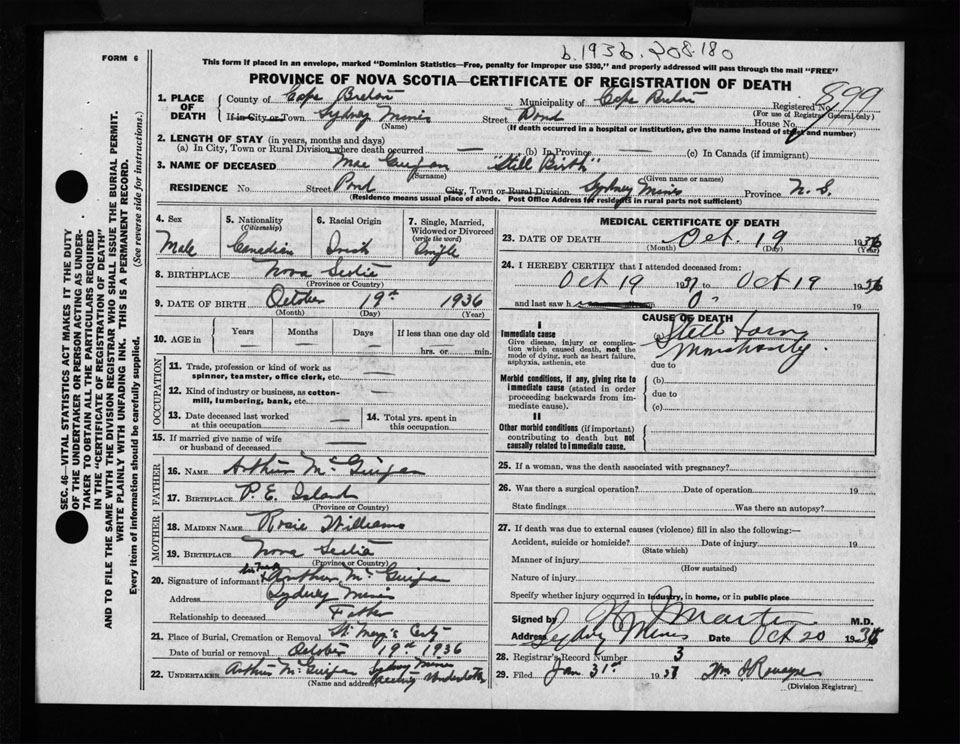 b. 1936. 208.180
FORM 6
This form if placed in an envelope, marked "Dominion Statistics—Free, penalty for improper use $300," and properly addressed will pass through the mail "FREE"
PROVINCE OF NOVA SCOTIA—CERTIFICATE OF REGISTRATION OF DEATH
1. PLACE OF DEATH
County of Cape Breton Municipality of Cape Breton Registered No. 899
(For use of Registrar General only)
If in City or Town Sydney Mines Street Pond House No.
(Name) (If death occurred in a hospital or institution, give the name instead of street and number)
2. LENGTH OF STAY (in years, months and days)
(a) In City, Town or Rural Division where death occurred — (b) In Province — (c) In Canada (if immigrant)
3. NAME OF DECEASED Mac Guigan "Still Birth"
(Surname) (Given name or names)
RESIDENCE No. Street Pond City, Town or Rural Division Sydney Mines Province N. S.
(Residence means usual place of abode. Post Office Address for residents in rural parts not sufficient)
4. Sex Male
5. Nationality (Citizenship) Canadian
6. Racial Origin Irish
7. Single, Married, Widowed or Divorced (write the word) Single
8. BIRTHPLACE Nova Scotia
(Province or Country)
9. DATE OF BIRTH October 19th 1936
(Month) (Day) (Year)
10. AGE in Years — Months — Days — If less than one day old hrs. or min.
OCCUPATION
11. Trade, profession or kind of work as spinner, teamster, office clerk, etc. —
12. Kind of industry or business, as cotton-mill, lumbering, bank, etc. —
13. Date deceased last worked at this occupation —
14. Total yrs. spent in this occupation
15. If married give name of wife or husband of deceased —
FATHER
16. NAME Arthur McGuigan
17. BIRTHPLACE P. E. Island
(Province or Country)
MOTHER
18. MAIDEN NAME Rosie Williams
19. BIRTHPLACE Nova Scotia
(Province or Country)
20. Signature of informant Arthur McGuigan
Address Sydney Mines
Relationship to deceased Father
21. Place of Burial, Cremation or Removal St. Mary's
Date of burial or removal October 19th 1936
22. UNDERTAKER Arthur McGuigan Sydney Mines
(Name and address)
MEDICAL CERTIFICATE OF DEATH
23. DATE OF DEATH Oct. 19 1936
(Month) (Day) (Year)
24. I HEREBY CERTIFY that I attended deceased from:
Oct 19 1937 to Oct 19 1936
and last saw h 19
CAUSE OF DEATH
I
Immediate cause
Give disease, injury or complication which caused death, not the mode of dying, such as heart failure, asphyxia, asthenia, etc
(a) Still
due to
Morbid conditions, if any, giving rise to immediate cause (stated in order proceeding backwards from immediate cause).
(b)
due to
(c)
II
Other morbid conditions (if important) contributing to death but not causally related to immediate cause.
25. If a woman, was the death associated with pregnancy?
26. Was there a surgical operation? Date of operation 19
State findings Was there an autopsy?
27. If death was due to external causes (violence) fill in also the following:—
Accident, suicide or homicide? Date of injury 19
(State which)
Manner of injury
(How sustained)
Nature of injury
Specify whether injury occurred in industry, in home, or in public place
Signed by Martin M.D.
Address Sydney Mines Date Oct 20 1936
28. Registrar's Record Number 3
29. Filed Jan 31st 1937
(Division Registrar)
SEC. 46—VITAL STATISTICS ACT MAKES IT THE DUTY
OF THE UNDERTAKER OR PERSON ACTING AS UNDER-
TAKER TO OBTAIN ALL THE PARTICULARS REQUIRED
IN THE "CERTIFICATE OF REGISTRATION OF DEATH"
AND TO FILE THE SAME WITH THE DIVISION REGISTRAR WHO SHALL ISSUE THE BURIAL PERMIT.
WRITE PLAINLY WITH UNFADING INK. THIS IS A PERMANENT RECORD.
Every item of information should be carefully supplied. (See reverse side for instructions.)